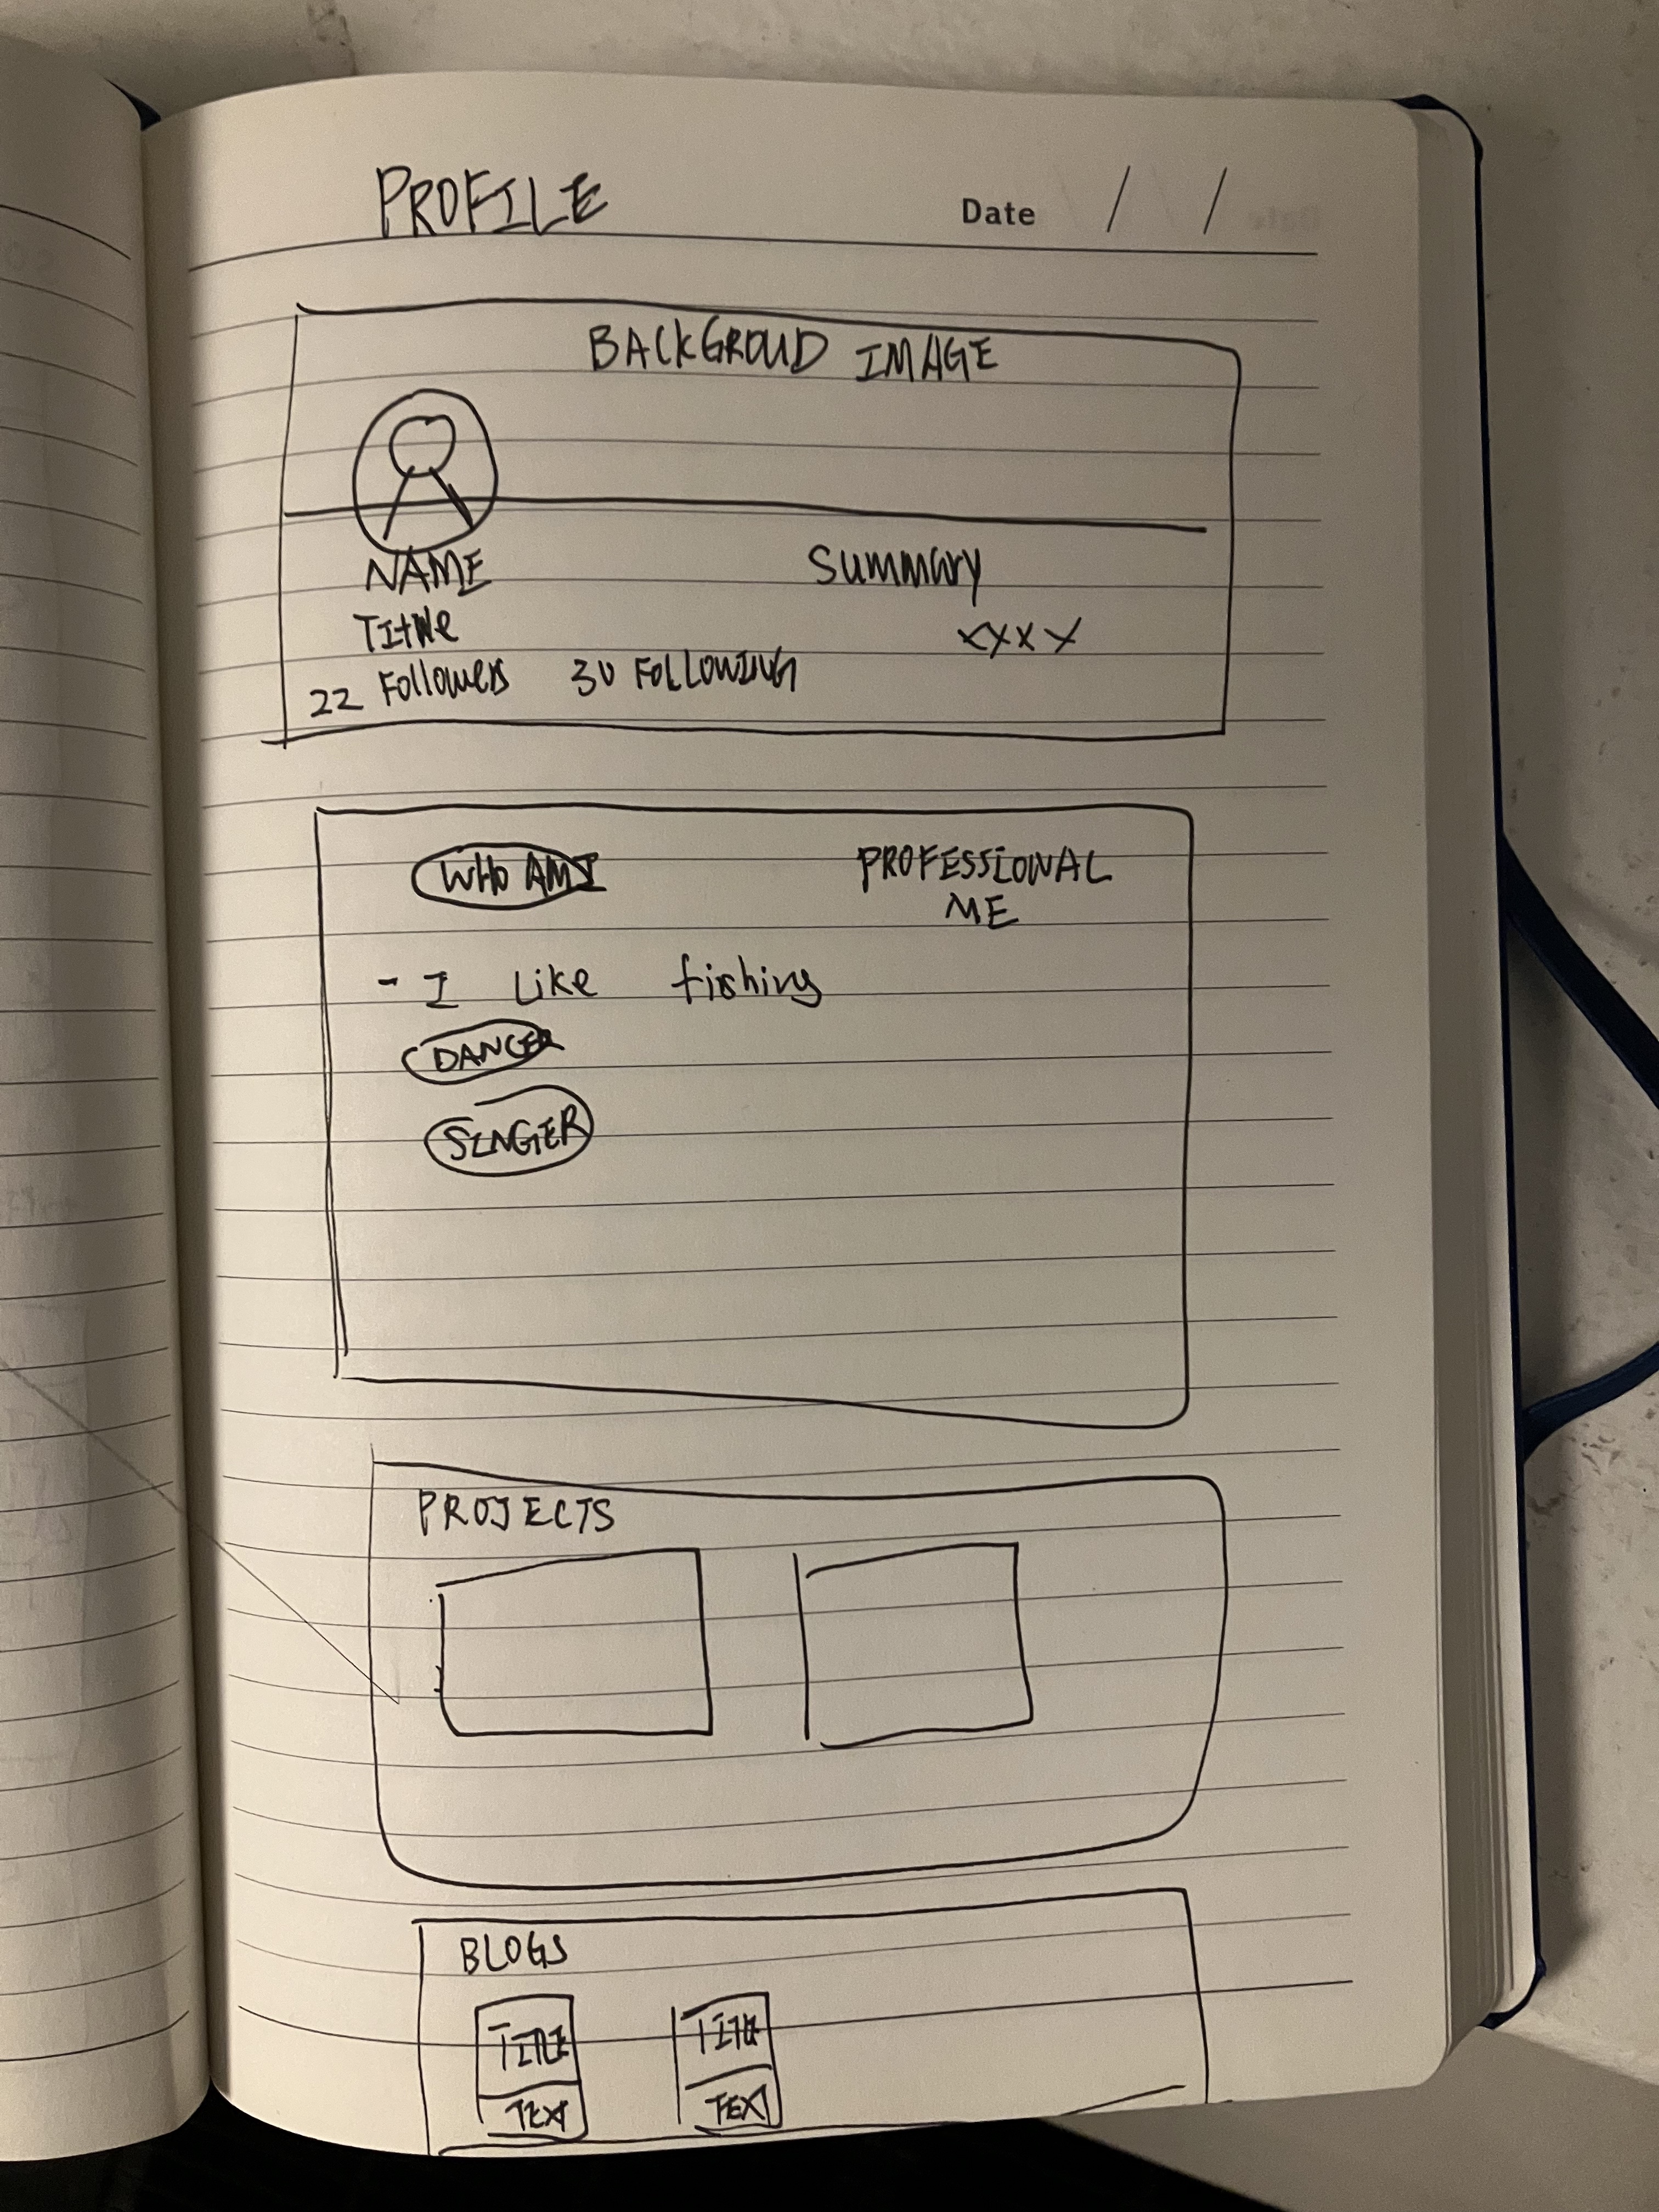 PROFILE
Date / /
BACKGROUD IMAGE
NAME
Summary
xxxx
22 Followers 30 FOLLOWING
WHO AM I
PROFESSIONAL
ME
- I Like fishing
DANCER
SINGER
PROJECTS
BLOGS
TITLE
TEXT
TITLE
TEXT